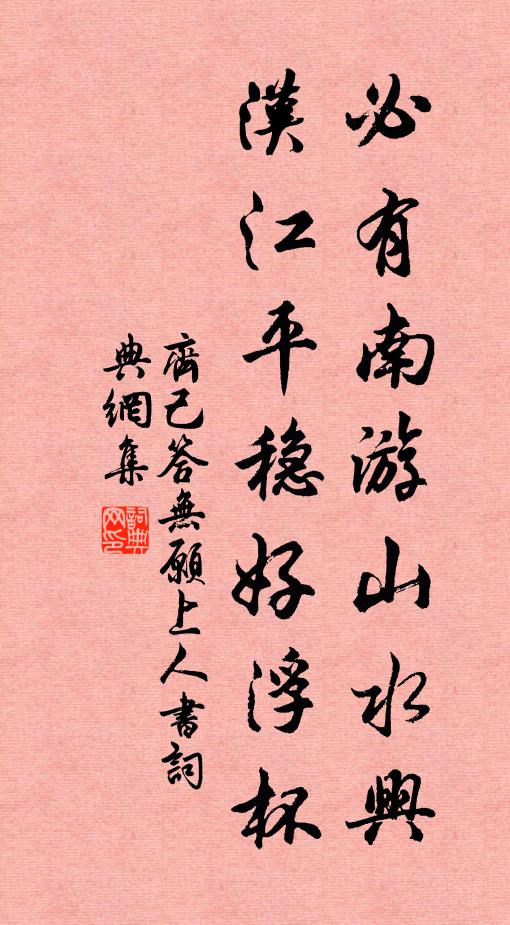 必有南游山水興
漢江平稳好浮杯
齊己答無願上人書詞
典網集
詞典網印